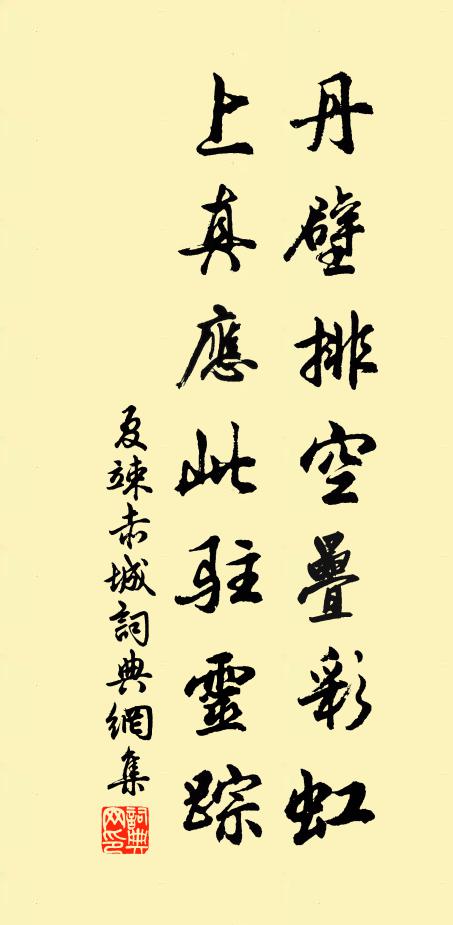 丹壁排空疊彩虹
上真應此駐靈踪
夏竦赤城詞典網集
詞典網印